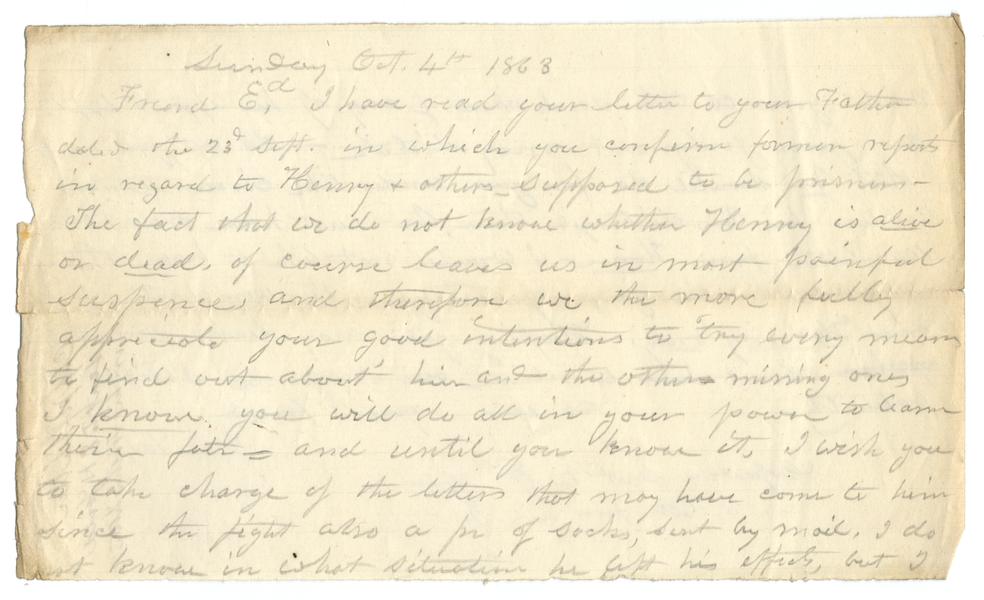 Sunday Oct. 4th 1863
Friend Ed, I have read your letter to your Father
dated the 23d Sept. in which you confirm former reports
in regard to Henry & others - supposed to be prisoners -
The fact that we do not know whether Henry is alive
or dead, of course leaves us in most painful
suspence, and therefore we the more fully
appreciate your good intentions to try every means
to find out about him and the others missing ones
I know you will do all in your power to learn
their fate = and until you know it, I wish you
to take charge of the letters that may have come to him
since the fight also a pr of socks, sent by mail. I do
not know in what situation he left his effects, but I